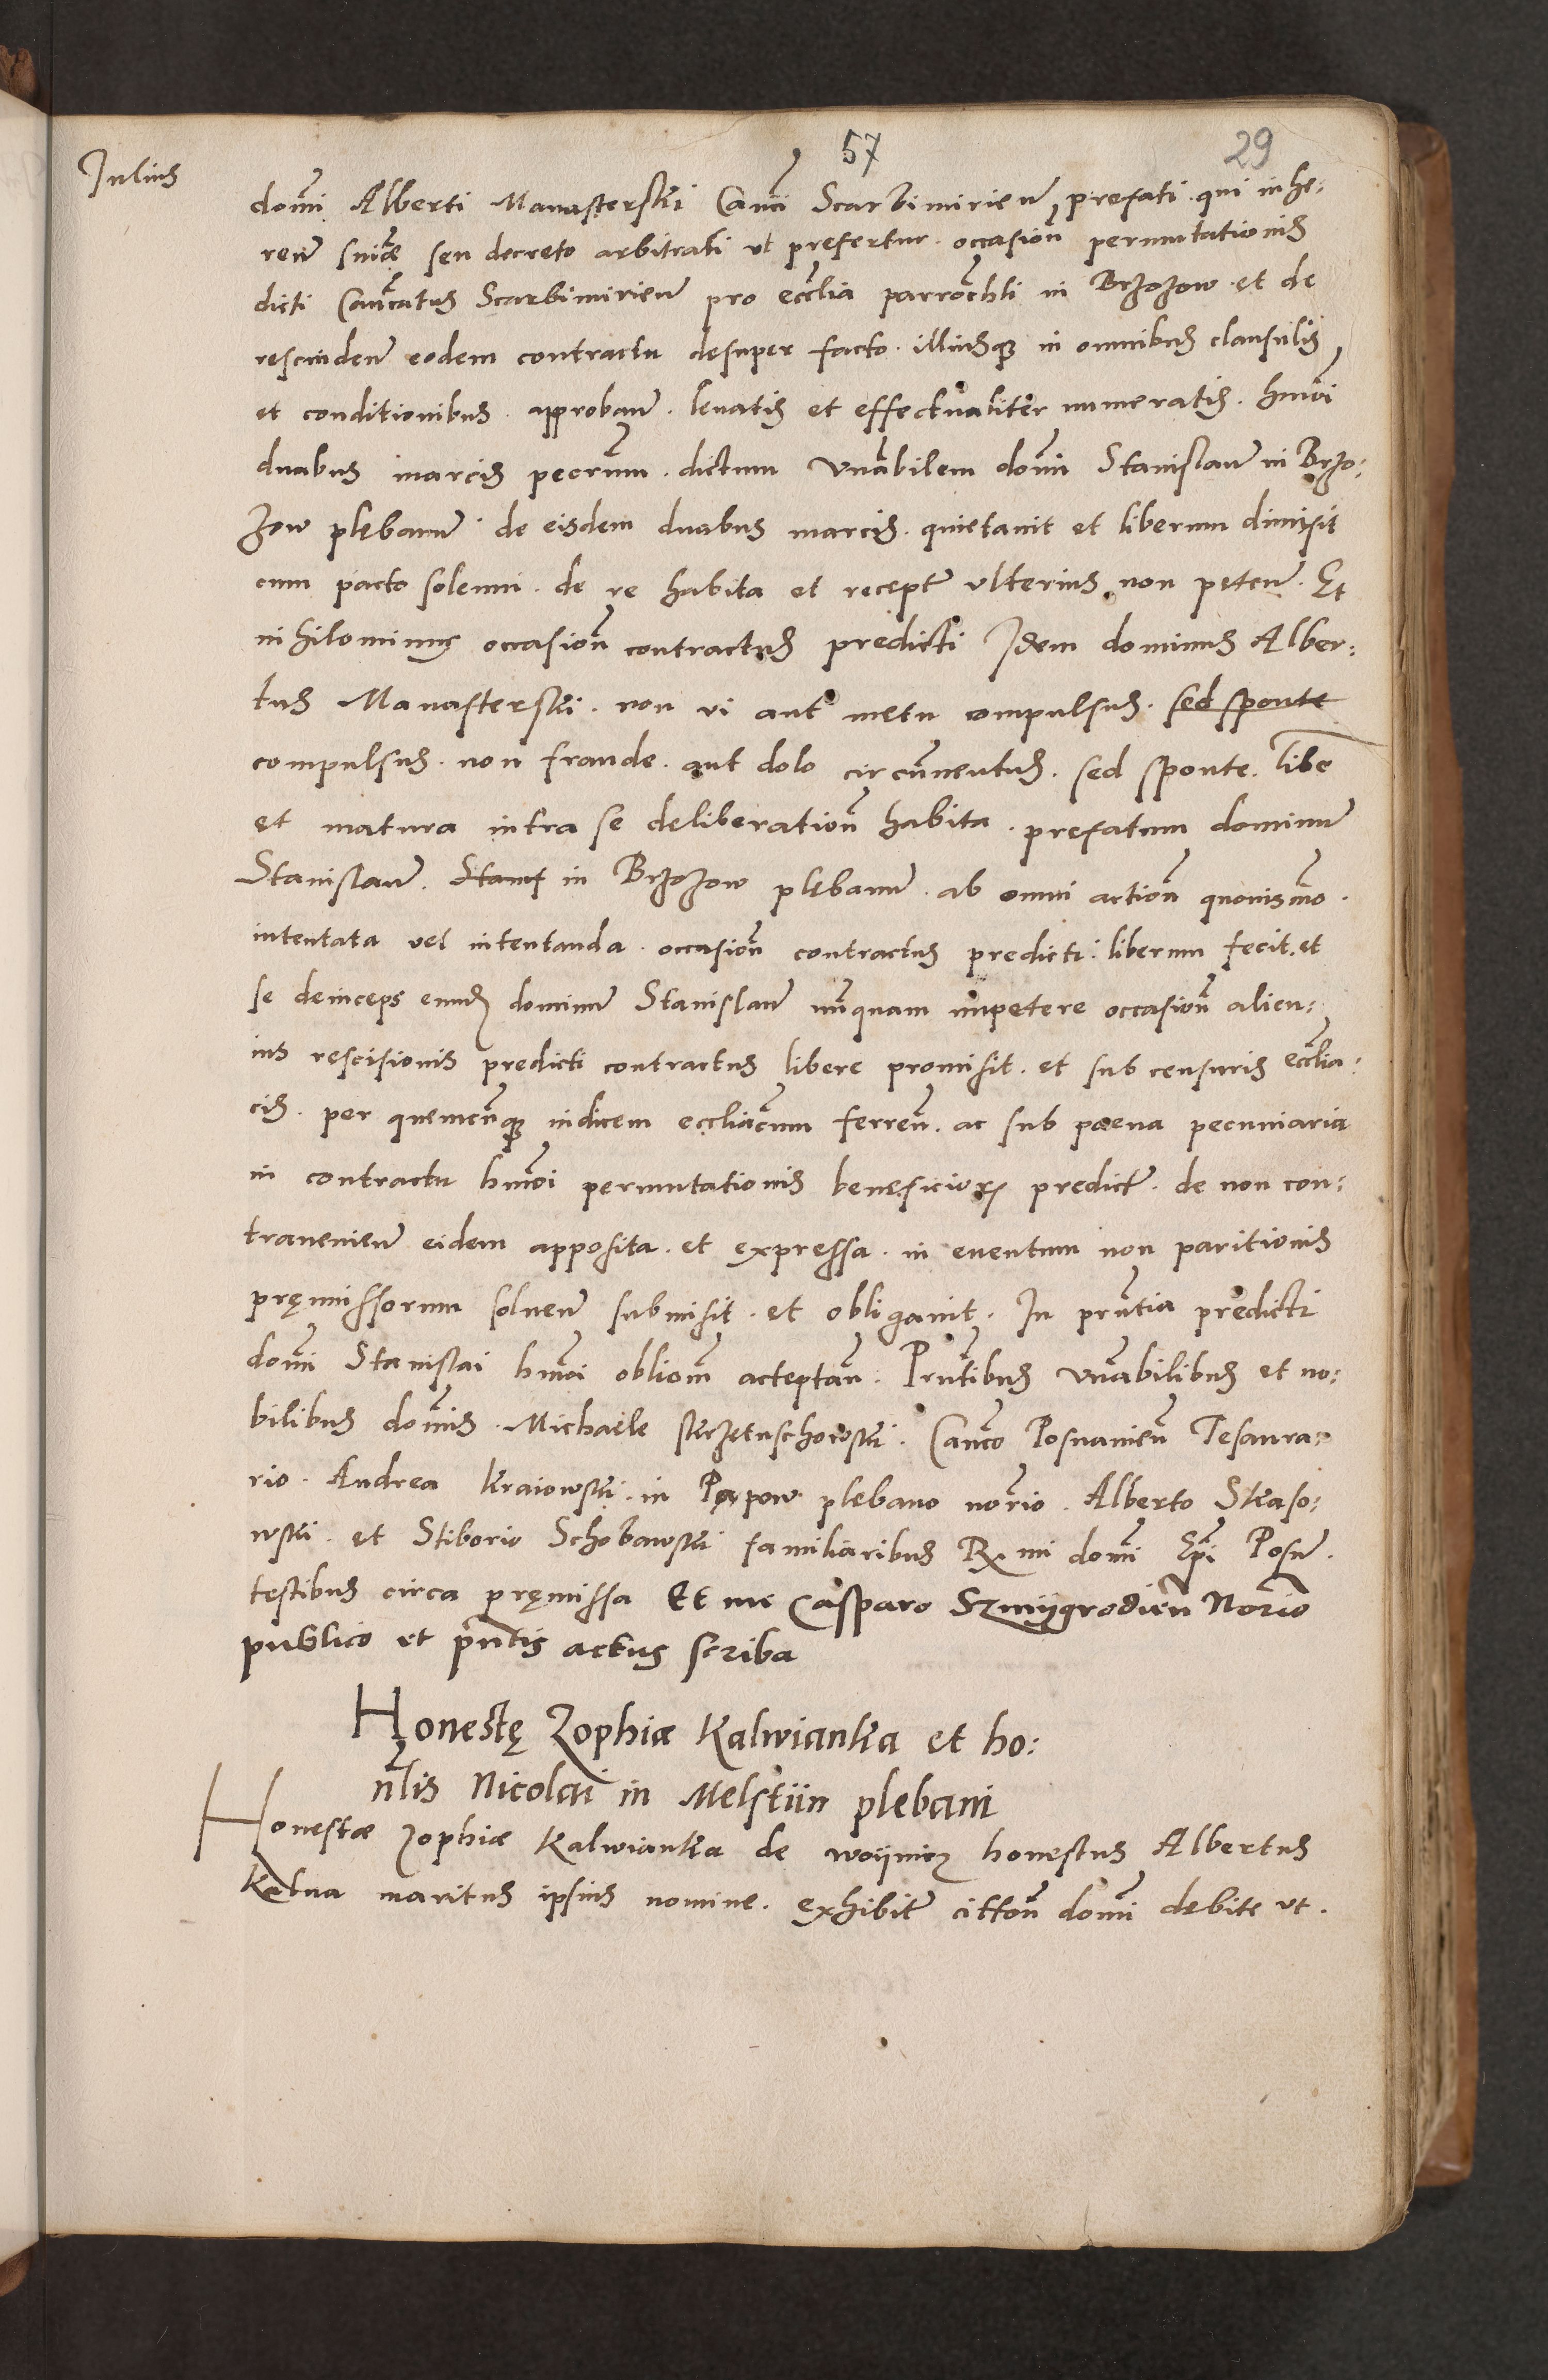 57
29
Julius
domni Alberti Manasterskii Canci Scarbimirien prefati. qui inhe:
ren sniæ seu decreto arbitrali ut prefertur. occasion permutationis
dicti Canicatus Scarbimirien pro ecclia parrochli in Brzozow et de
rescinden eodem contractu desuper facto. illiusque in omnibus clausulis
et conditionibus. approban. levatis et effectualiter numeratis. hmoi
duabus marcis pecrum. dictum Vnabilem domn Stanislaum in Brzo:
zow plebanum de eisdem duabus marcis. quietavit et liberum dimisit
cum pacto solenni. de re habita et recept ulterius non peten. Et
nihilominus occasion contractus predicti Idem dominus Alber:
tus Manasterskii. non vi aut metu compulsus. sed sponte
compulsus. non fraude. aut dolo circumventus. sed sponte. libe
et matura intra se deliberation habita. prefatum dominum
Stanislaum. Stanis in Brzozow plebanum. ab omni action quovismo.
intentata vel intentanda. occasion contractus predicti. liberum fecit. et
se deinceps eundem dominum Stanislaum nunquam impetere occasion alicu:
ius rescisionis predicti contractus libere promisit. et sub censuris ecclia:
cis. per quemcunque iudicem eccliacum ferren. ac sub poena pecuniaria
in contractu hmoi permutationis beneficiorum predict. de non con:
travenien eidem apposita. et expressa. in eventum non paritionis
pręmissorum solven submisit. et obligavit. In prntia predicti
domni Stanislai hmoi obliom acceptan. Prntibus Vnabilibus et no:
bilibus domnis. Michaele skrzetuschowskii. Canco Posnanien Tesaura:
rio. Andrea kraiowskii. in Pępow plebano norio. Alberto Skaso:
wskii. et Stiborio Schobawskii familiaribus Rmi domni Epi Posn.
testibus circa pręmissa Et me Casparo Szmygrodien Norio
publico et prntis actus scriba
Honestę Zophiæ Kalwianka et ho:
nlis Nicolai in Melstiin plebani
Honestæ Zophiæ Kalwianka de woijnicz honestus Albertus
Kabua maritus ipsius nomine. exhibit citton domni debite ut.